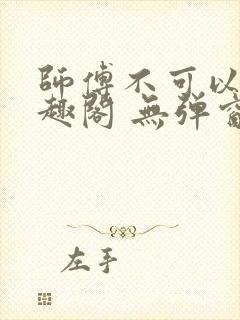 師傅不可以
趣閣 無弹
左手